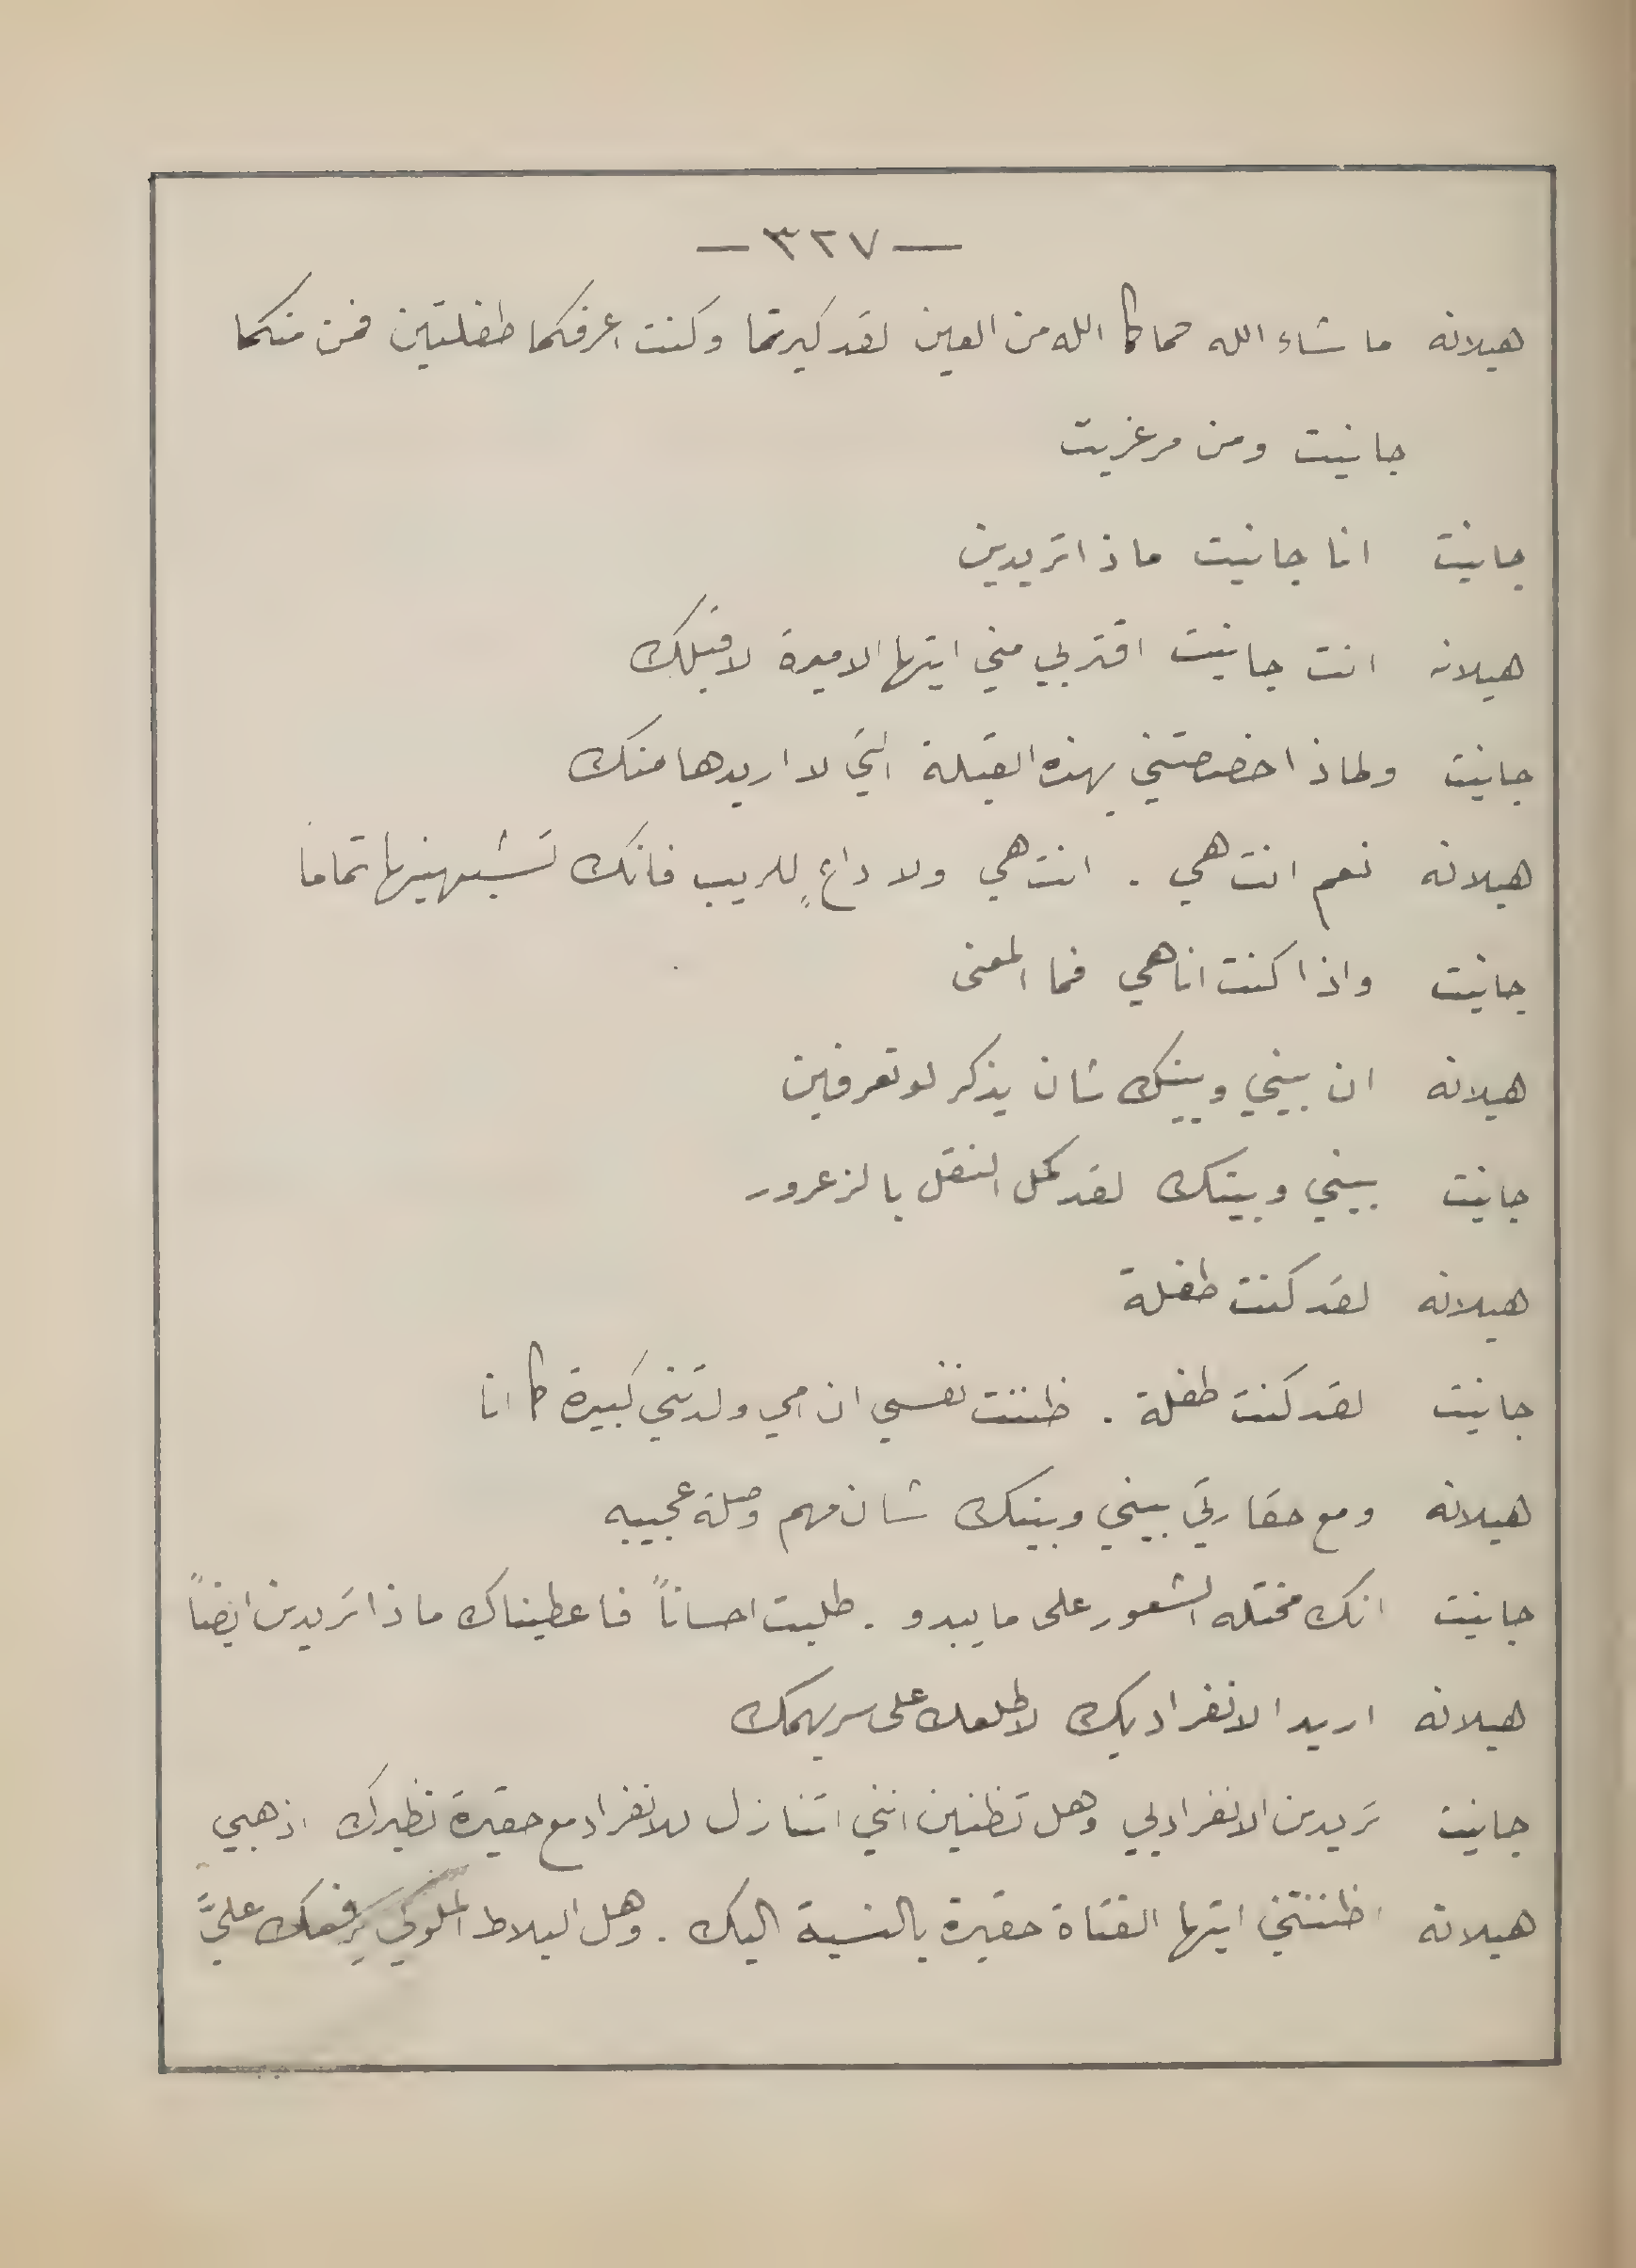 — ٣٢٧ —
هيلانه ما شاء الله حماكما الله من العين لقد كبرتما وكنت اعرفكما طفلتين فمن منكما
جانيت ومن مرغريت
جانيت انا جانيت ماذا تريدين
هيلانه انت جانيت اقتربي مني ايتها الاميرة لاقبلك
جانيت ولماذا خصصتني بهذه القبلة التي لا اريدها منك
هيلانه نعم انت هي . انت هي ولا داعٍ للريب فانك تشبهينها تماما
جانيت واذا كنت انا هي فما المعنى
هيلانه ان بيني وبينك شان يذكر لو تعرفين
جانيت بيني وبينك لقد كمل النقل بالزعرور
هيلانه لقد كنت طفلة
جانيت لقد كنت طفلة . ظننت نفسي ان امي ولدتني كبيرة كما انا
هيلانه ومع حقارتي بيني وبينك شان مهم وصلة عجيبه
جانيت انك مختله الشعور على ما يبدو . طلبت احساناً فاعطيناك ماذا تريدين ايضاً
هيلانه اريد الانفراد بك لاطلعك على سر يهمك
جانيت تريدين الانفراد بي وهل تظنين انني اتنازل للانفراد مع حقيرة نظيرك اذهبي
هيلانه اظننتني ايتها الفتاة حقيرة بالنسبة اليك . وهل البلاط الملوكي يرفعك عليَّ